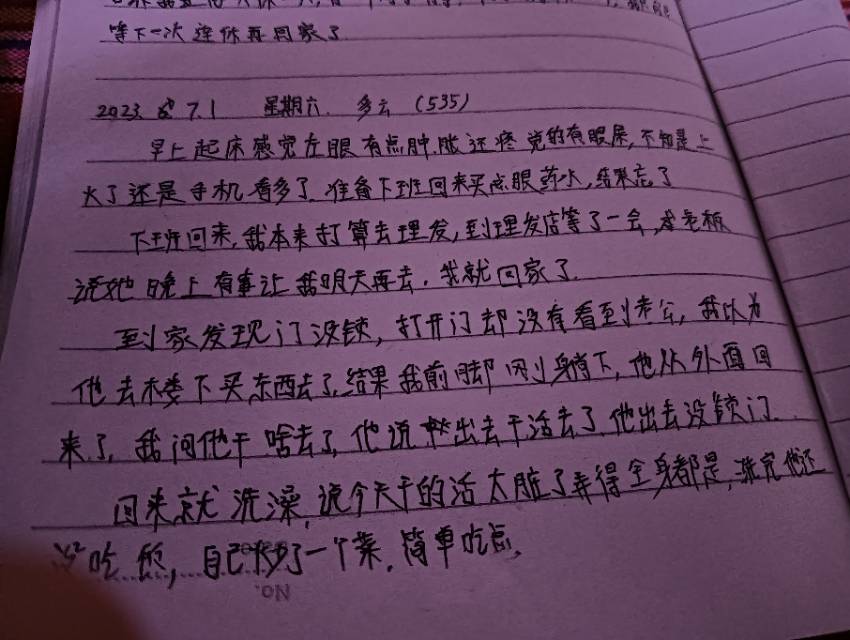 等下一次连休再回家了
2023.6 7.1 星期六. 多云 (535)
早上起床感觉左眼有点肿.胀还疼 觉的有眼屎,不知是上
火了还是手机看多了.准备下班回来买点眼药水,结果忘了
下班回来,我本来打算去理发,到理发店等了一会,老板
说她晚上有事让我明天再去.我就回家了.
到家发现门没锁,打开门却没有看到老公,我以为
他去楼下买东西去了.结果我前脚刚躺下,他从外面回
来了,我问他干啥去了,他说出去干活去了.他出去没锁门.
回来就洗澡,说今天干的活太脏了弄得全身都是,洗完他还
没吃饭,自己炒了一个菜.简单吃点,
NO.